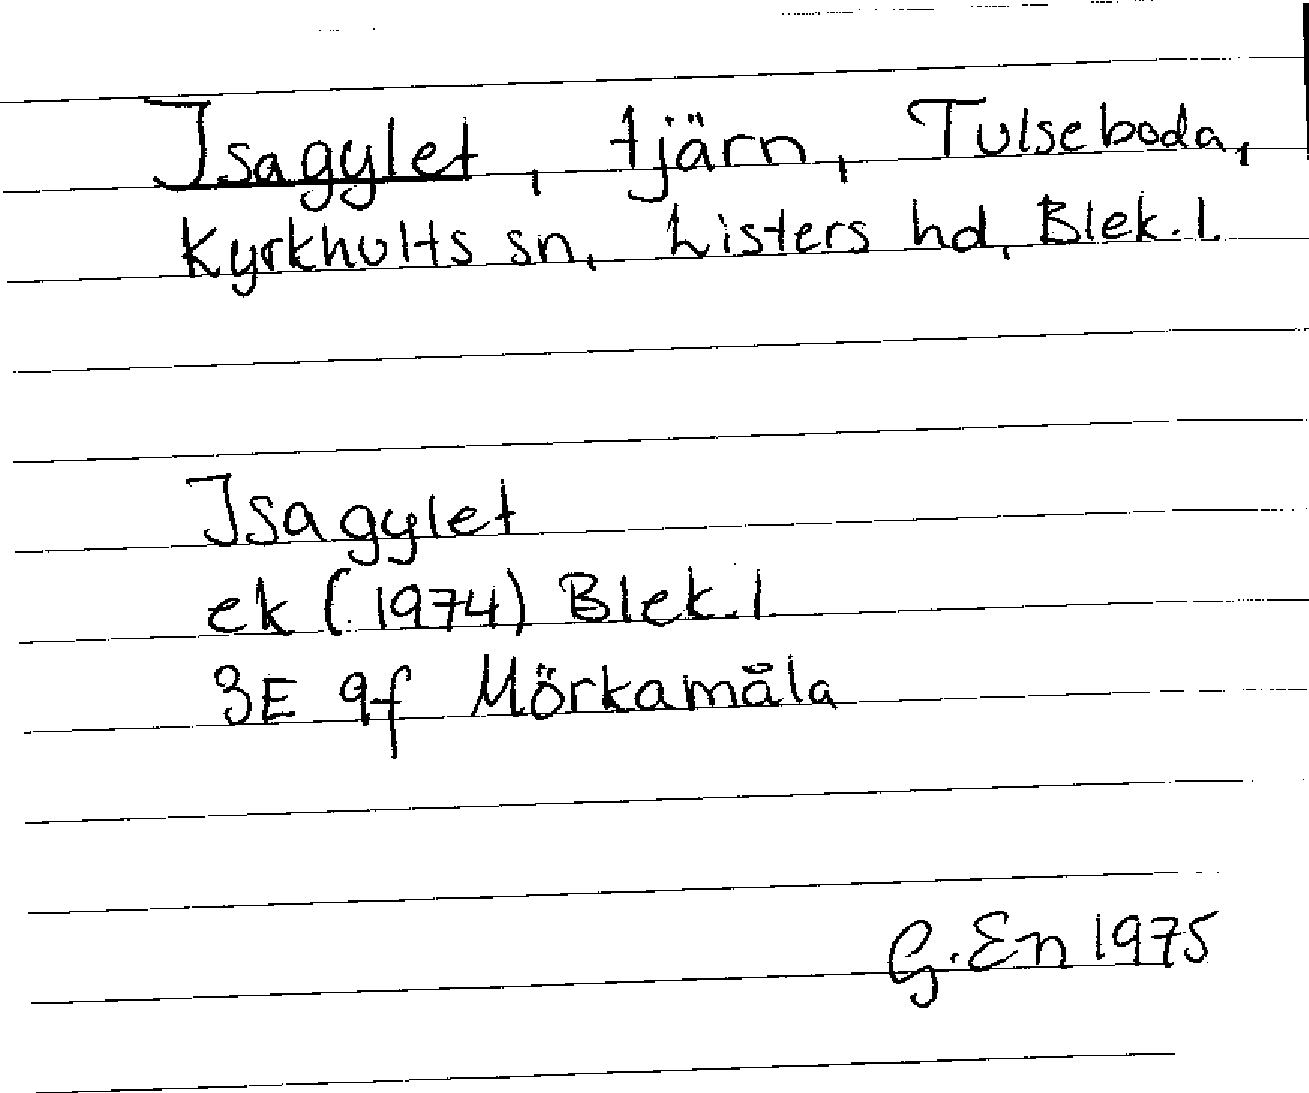 Isagylet, tjärn, Tulseboda,
Kyrkhults sn, Listers hd, Blek. l.
Isagylet
ek (1974) Blek. l
3E 9f Mörkamåla
G. En 1975